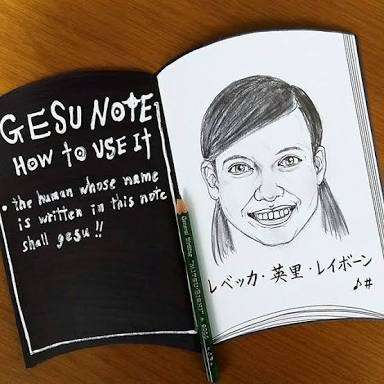 GESU NOTE
HOW to USE It
• the human whose name
is written in this note
shall gesu!!
レベッカ・英里・レイボーン
♪#